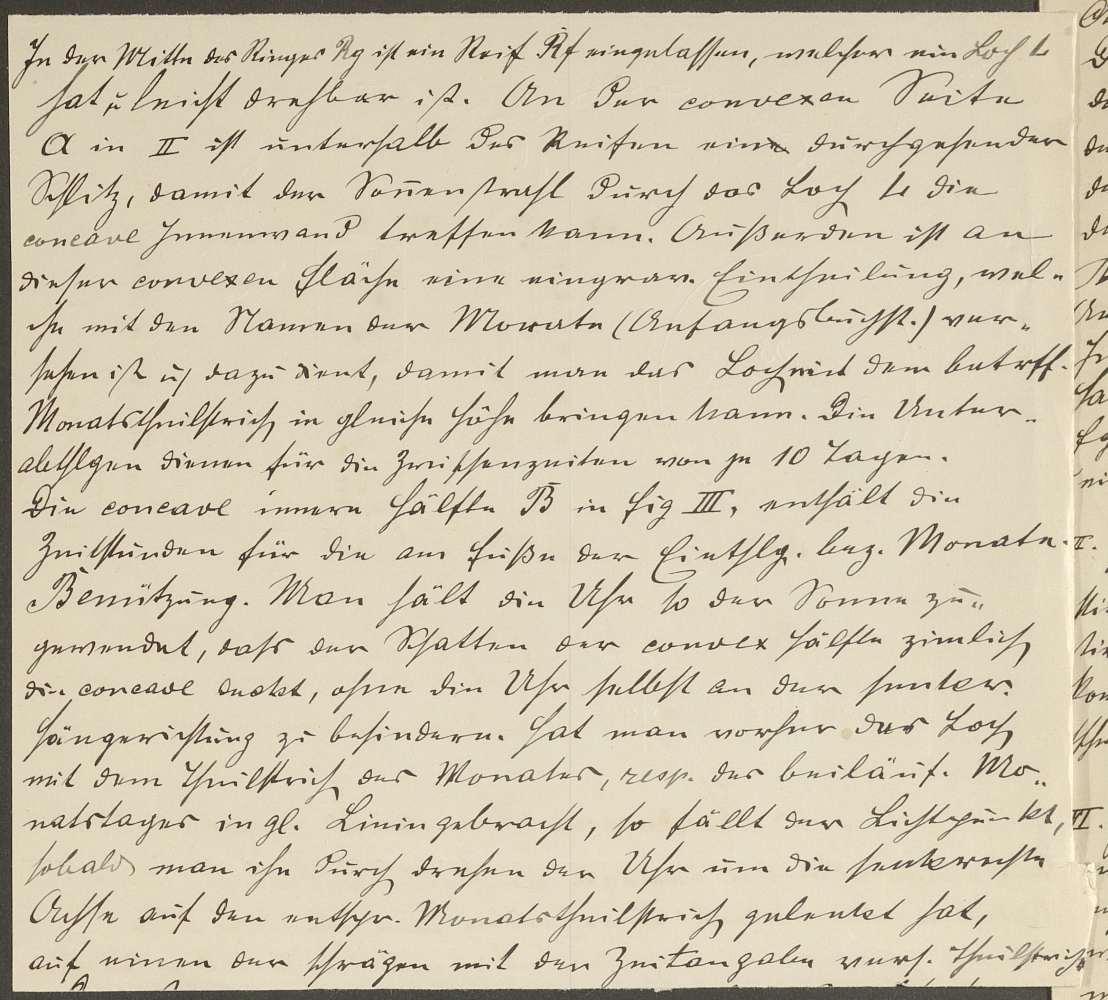 In der Mitte des Ringes Rg ist ein Reif Rf eingelassen, welcher ein Loch L
hat u leicht drehbar ist. An der convexen Seite
A in II ist unterhalb des Reifen ein durchgehender
Schlitz, damit der Sonnenstrahl durch das Loch L die
concave Innenwand treffen kann. Außerdem ist an
dieser convexen Fläche eine eingrav. Eintheilung, wel-
che mit den Namen der Monate (Anfangsbuchst.) ver-
sehen ist u. dazu dient, damit man das Loch mit dem betrff.
Monatstheilstrich in gleiche Höhe bringen kann. Die Unter-
abthlgen dienen für die Zwischenzeiten von je 10 Tagen.
Die concave innere Hälfte B in Fig III, enthält die
Zeitstunden für die am Fuße der Einthlg. bez. Monate.
Benützung. Man hält die Uhr so der Sonne zu-
gewendet, dass der Schatten der convex Hälfte zimlich
die concave deckt, ohne die Uhr selbst an der senker.
Hängerichtung zu behindern. Hat man vorher das Loch
mit dem Theilstrich des Monates, resp. des beiläuf. Mo-
natstages in gl. Linie gebracht, so fällt der Lichtpunkt,
sobald man ihn durch drehen der Uhr um die senkrechte
Achse auf den entspr. Monatstheilstrich gelenkt hat,
auf einen der schrägen mit der Zeitangabe vers. Theilstriche